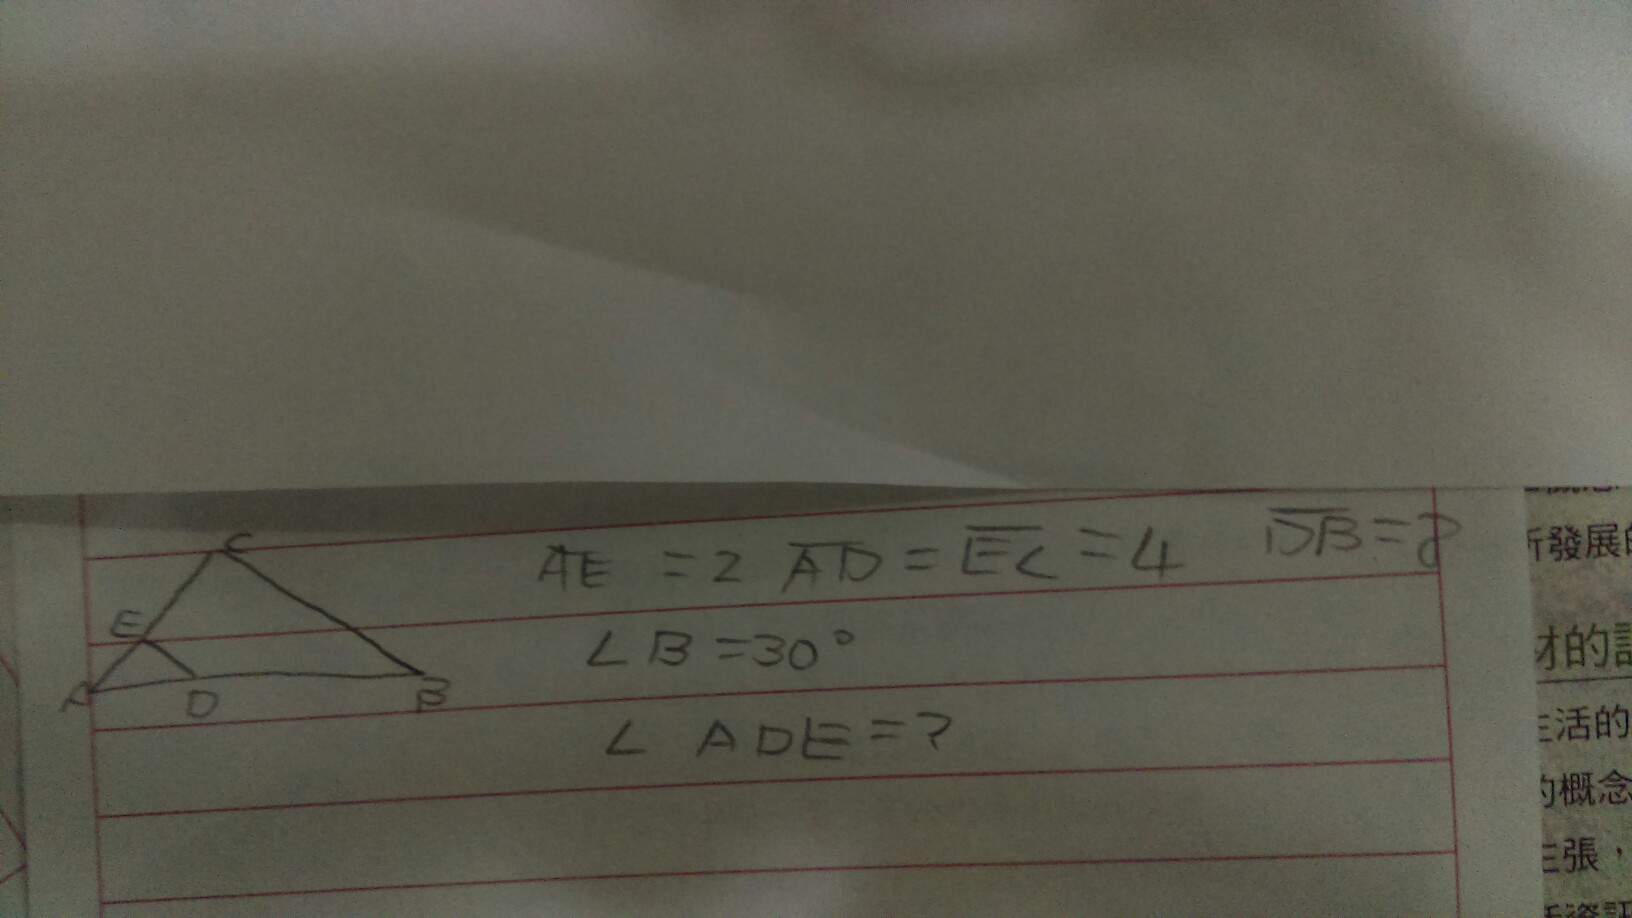 C
E
A D B
AE = 2 AD = EC = 4 DB = 8
∠B = 30°
∠ADE = ?
所發展
材的
生活的
的概念
主張，